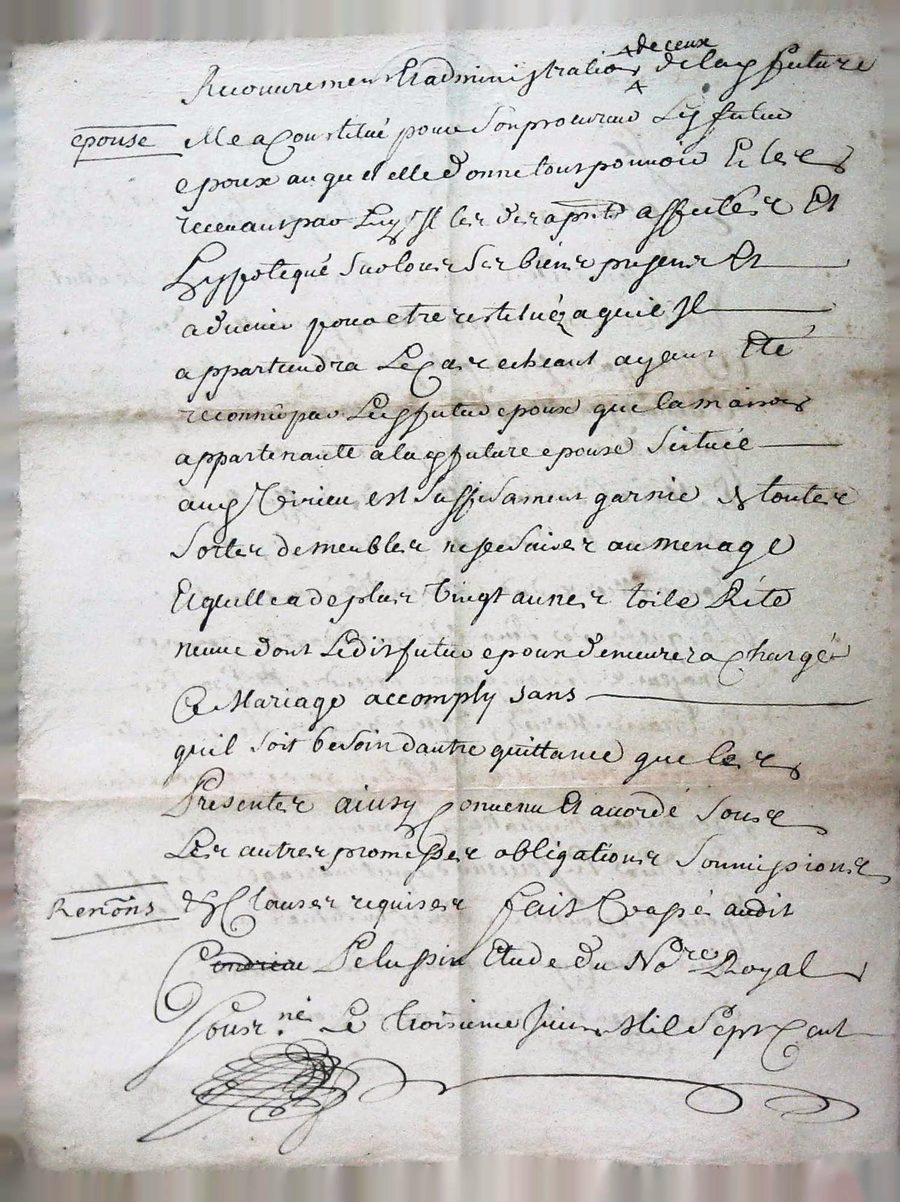 de ceux
Recouvrement Et administration de lad future
epouse Elle a Constitué pour son procureur Led futur
epoux auquel elle donne tout pouvoir Et les
recevant par Luy Il les dera affecter Et
hypotequé sur tous ses biens presens Et
advenir pour etre restitués a qui Il
appartiendra Le Cas echeant ayant Eté
reconnu par Led futur epoux que la maison
appartenante a lad future epouse Scituée
aud Virieu est suffisament garnie de toutes
Sortes de meubles nessesaires au menage
Et quelle a de plus Vingt aunes toile Rite
neuve dont Ledit futur epoux demeurera Chargé
Ce Mariage accomply sans
quil soit besoin dautre quittance que les
Presentes ainsy Convenu Et accordé sous
Les autres promesses obligations soumissions
Renōns & Clauses requises fait Et passé audit
Condrieu Pelussin Etude du Nore Royal
Soussné Le troisieme Juin Mil Sept Cent